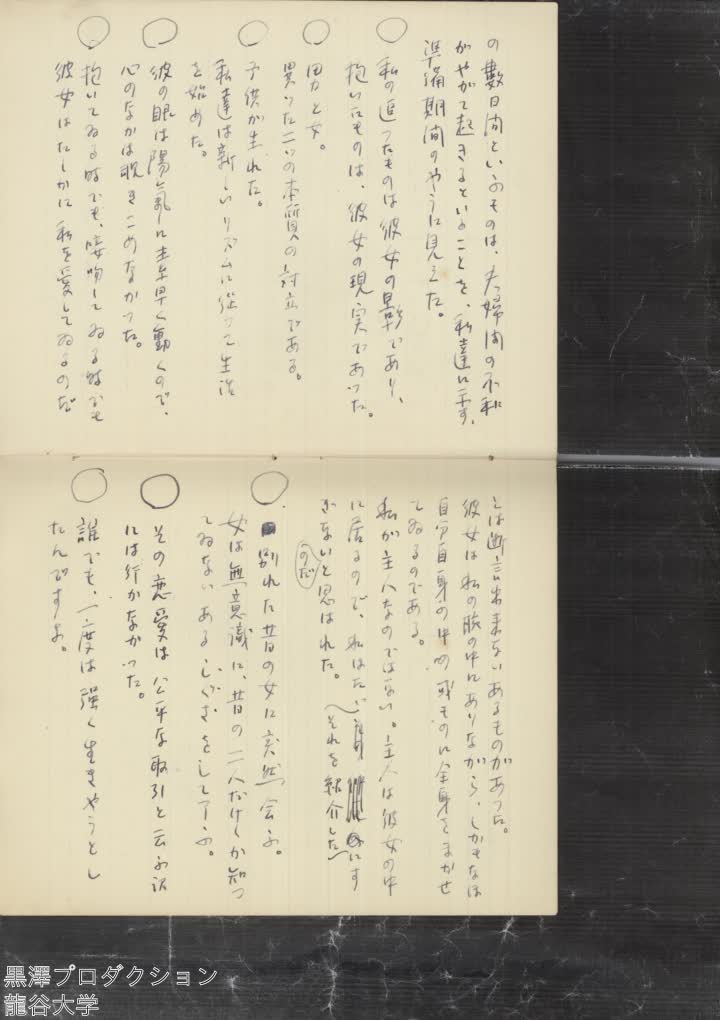 の數日間といふものは、夫婦間の不和
がやがて起きるといふことを、私達に示す、
準備期間のやうに見えた。
私の追つたものは彼女の影であり、
抱いたものは、彼女の現実であつた。
男と女。
異つた二つの本質の対立である。
子供が生れた。
私達は新しいリズムに従つて生活
を始めた。
彼の眼は陽気に素早く動くので、
心のなかは覗きこめなかつた。
抱いてゐる時でも、接吻してゐる時でも
彼女はたしかに私を愛してゐるのだ
とは断言出来ないあるものがあつた。
彼女は私の腕の中にありながら、しかもなほ
自分自身の中の或ものに全身をまかせ
てゐるのである。
私が主人なのではない。主人は彼女の中
に居るので、私はただ
にす
ぎないと思はれた。
のだ
それを紹介した
別れた昔の女に突然会ふ。
女は無意識に、昔の二人だけしか知つ
てゐないあるしぐさをして了ふ。
その恋愛は公平な取引と云ふ訳
には行かなかつた。
誰でも、一度は強く生きやうとし
たんですよ。
黒澤プロダクション
龍谷大学